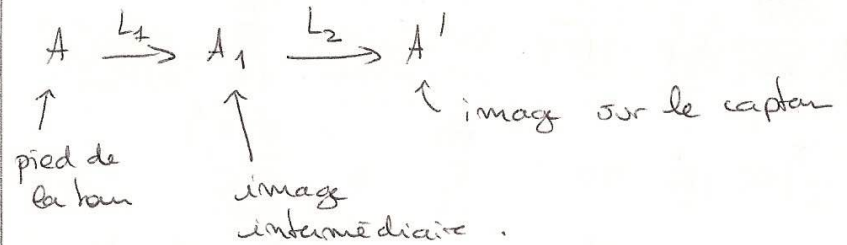 A —L₁→ A₁ —L₂→ A'
↑ ↑ ↑ image sur le capteur
pied de
la tour
image
intermédiaire.